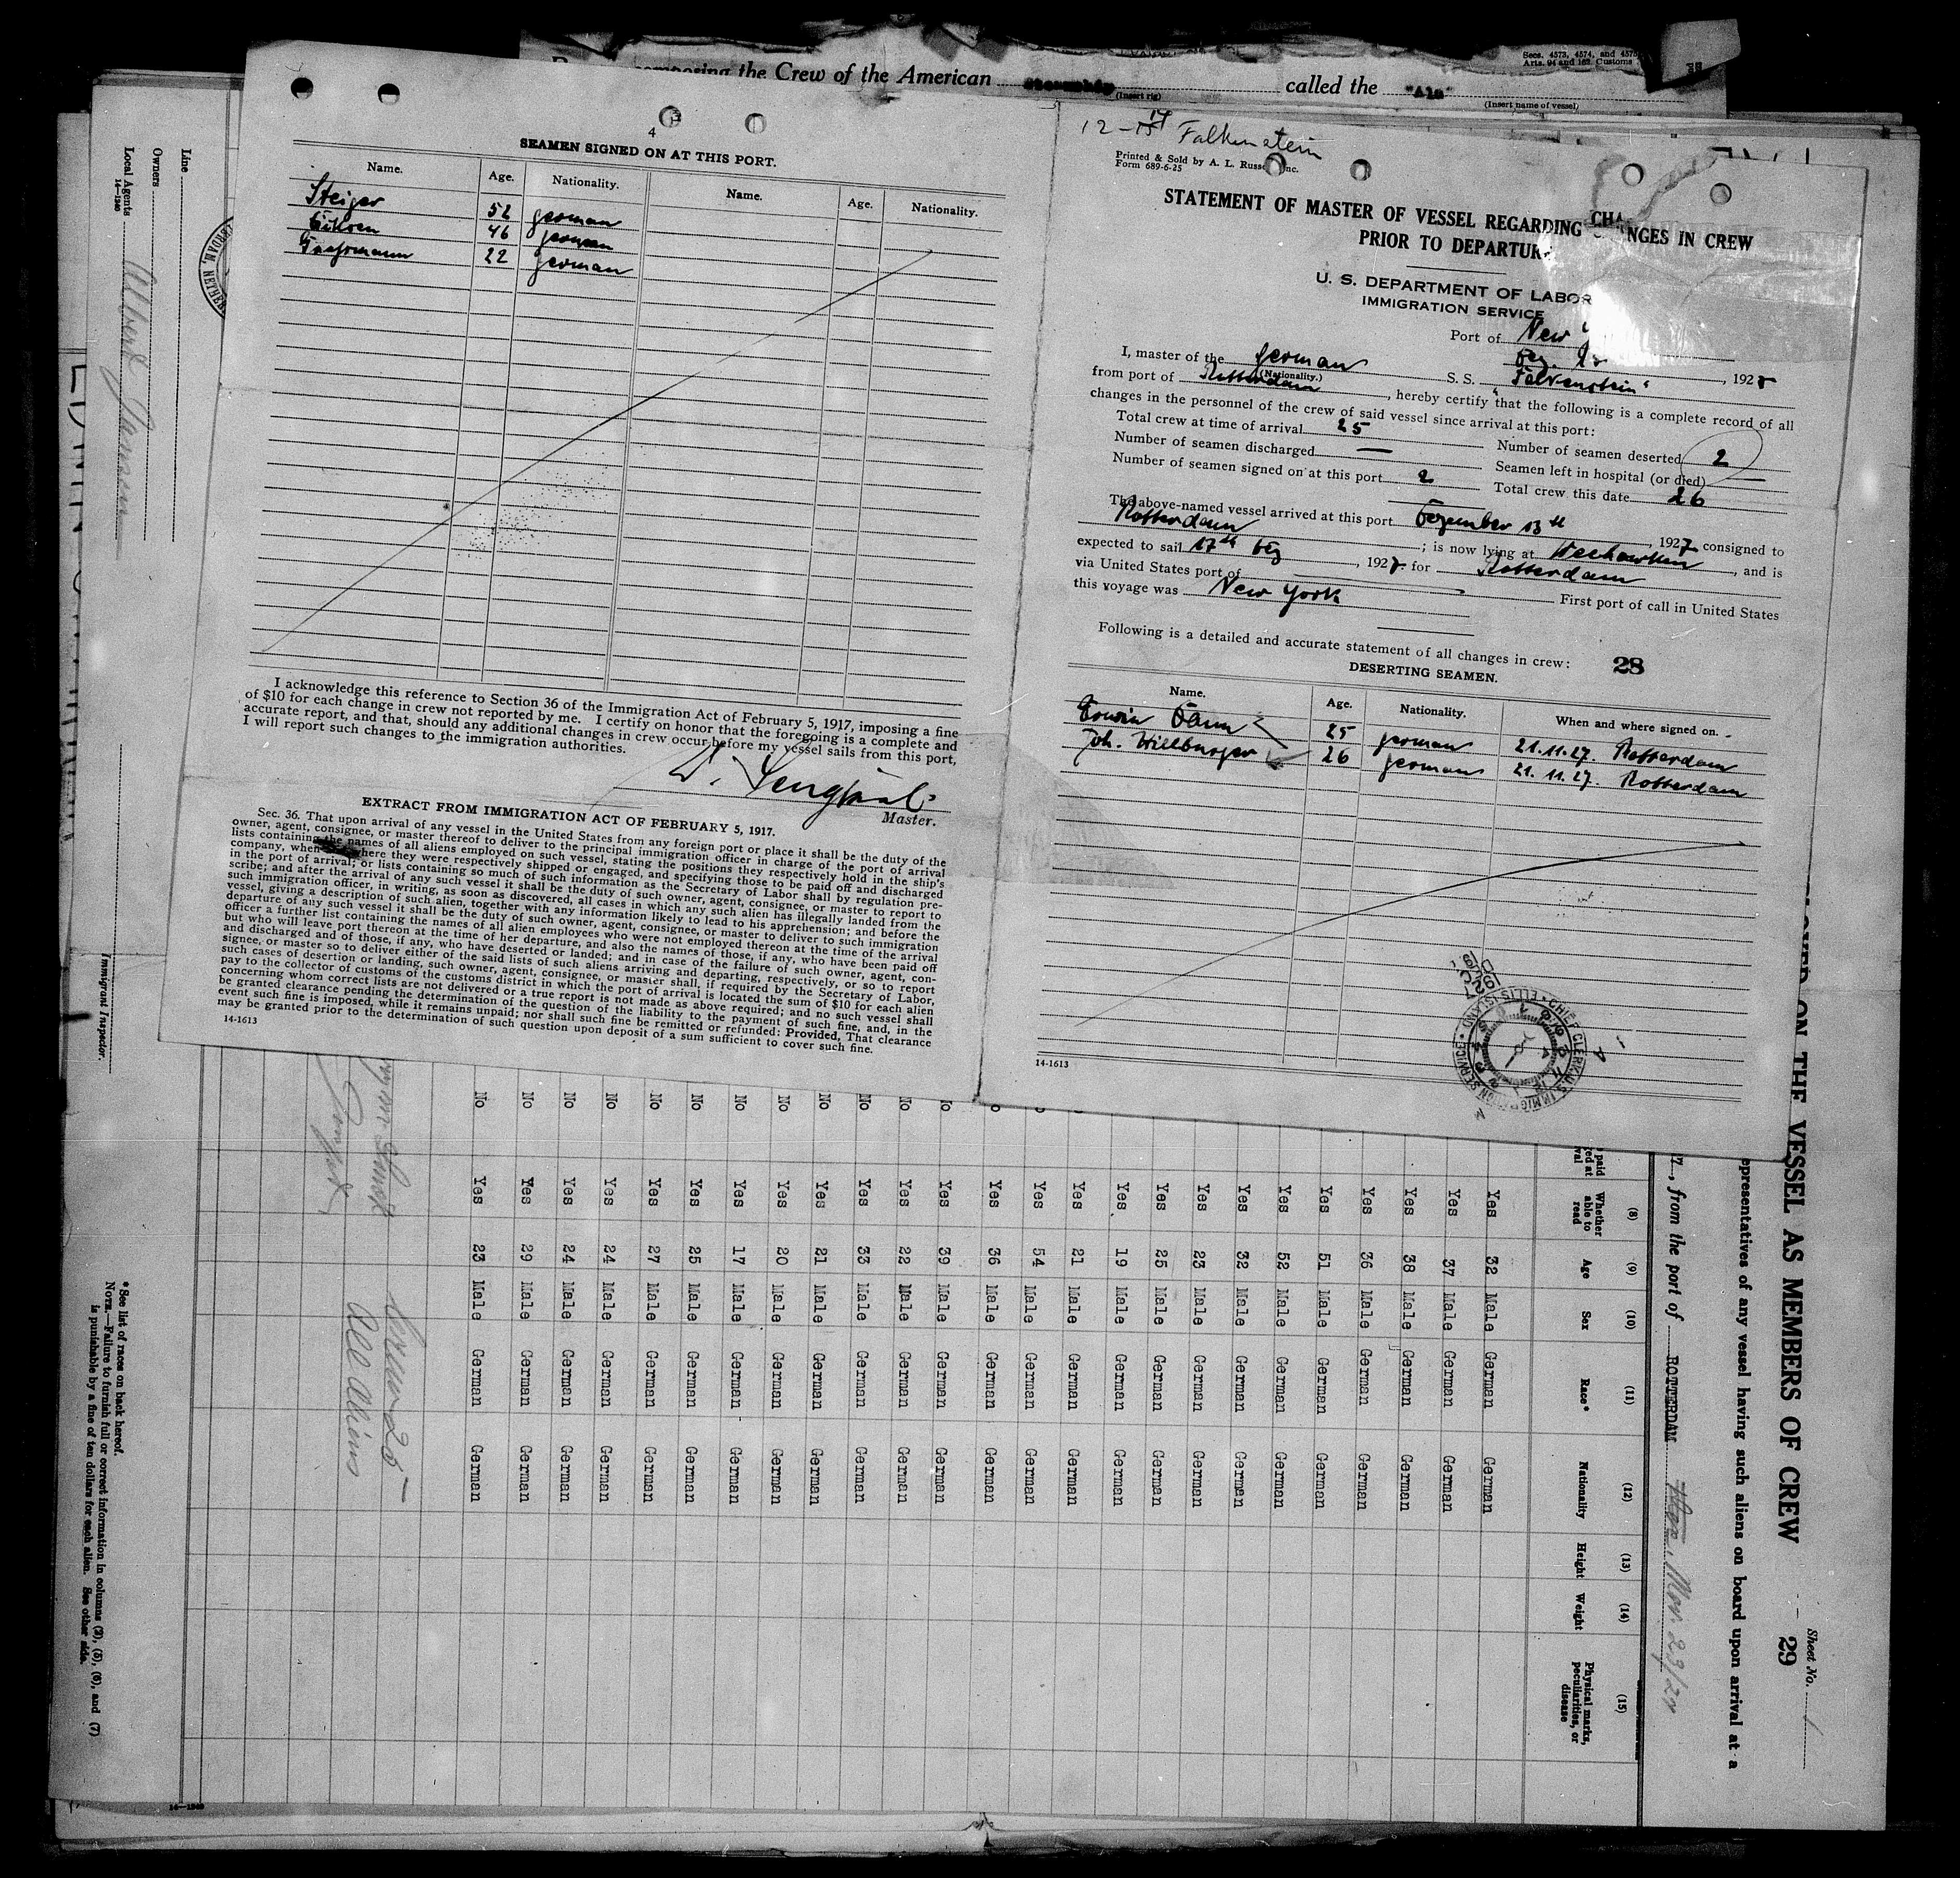 composing the Crew of the American Steamship called the "Ala"
(Insert rig)
(Insert name of vessel)
Secs. 4573, 4574, and 4575
Arts. 94 and 162, Customs
Line
Owners
Local Agents
14—1240
Albert Jansen
Immigrant Inspector.
4
SEAMEN SIGNED ON AT THIS PORT.
Name. Age. Nationality. Name. Age. Nationality.
Steiger 52 german
46 german
22 german
I acknowledge this reference to Section 36 of the Immigration Act of February 5, 1917, imposing a fine
of $10 for each change in crew not reported by me. I certify on honor that the foregoing is a complete and
accurate report, and that, should any additional changes in crew occur before my vessel sails from this port,
I will report such changes to the immigration authorities.
Master.
EXTRACT FROM IMMIGRATION ACT OF FEBRUARY 5, 1917.
Sec. 36. That upon arrival of any vessel in the United States from any foreign port or place it shall be the duty of the
owner, agent, consignee, or master thereof to deliver to the principal immigration officer in charge of the port of arrival
lists containing the names of all aliens employed on such vessel, stating the positions they respectively hold in the ship's
company, when and where they were respectively shipped or engaged, and specifying those to be paid off and discharged
in the port of arrival; or lists containing so much of such information as the Secretary of Labor shall by regulation pre-
scribe; and after the arrival of any such vessel it shall be the duty of such owner, agent, consignee, or master to report to
such immigration officer, in writing, as soon as discovered, all cases in which any such alien has illegally landed from the
vessel, giving a description of such alien, together with any information likely to lead to his apprehension; and before the
departure of any such vessel it shall be the duty of such owner, agent, consignee, or master to deliver to such immigration
officer a further list containing the names of all alien employees who were not employed thereon at the time of the arrival
but who will leave port thereon at the time of her departure, and also the names of those, if any, who have been paid off
and discharged and of those, if any, who have deserted or landed; and in case of the failure of such owner, agent, con-
signee, or master so to deliver either of the said lists of such aliens arriving and departing, respectively, or so to report
such cases of desertion or landing, such owner, agent, consignee, or master shall, if required by the Secretary of Labor,
pay to the collector of customs of the customs district in which the port of arrival is located the sum of $10 for each alien
concerning whom correct lists are not delivered or a true report is not made as above required; and no such vessel shall
be granted clearance pending the determination of the question of the liability to the payment of such fine, and, in the
event such fine is imposed, while it remains unpaid; nor shall such fine be remitted or refunded: Provided, That clearance
may be granted prior to the determination of such question upon deposit of a sum sufficient to cover such fine.
14-1613
12-15 17 Falkenstein
Printed & Sold by A. L. Russ Inc.
Form 689-6-25
STATEMENT OF MASTER OF VESSEL REGARDING CHANGES IN CREW
PRIOR TO DEPARTUR
U. S. DEPARTMENT OF LABOR
IMMIGRATION SERVICE
Port of New
Dez. 1927
I, master of the german S. S. "Falkenstein"
(Nationality.)
from port of Rotterdam, hereby certify that the following is a complete record of all
changes in the personnel of the crew of said vessel since arrival at this port:
Total crew at time of arrival 25
Number of seamen deserted 2
Number of seamen discharged —
Seamen left in hospital (or died) —
Number of seamen signed on at this port 2
Total crew this date 26
The above-named vessel arrived at this port Dezember 13th, 1927, consigned to
Rotterdam; is now lying at Weehawken, and is
expected to sail 17th Dez, 1927 for Rotterdam
via United States port of First port of call in United States
this voyage was New York
Following is a detailed and accurate statement of all changes in crew: 28
DESERTING SEAMEN.
Name. Age. Nationality. When and where signed on.
Erwin Damm 25 german 21.11.27. Rotterdam
Joh. Willburger 26 german 21.11.27. Rotterdam
14-1613
CHIEF CLERK U.S. IMMIGRATION SERVICE ELLIS ISLAND
1927
VESSEL AS MEMBERS OF CREW
Sheet No. 1
29
epresentatives of any vessel having such aliens on board upon arrival at a
, from the port of ROTTERDAM Nov. 23/27
(8) (9) (10) (11) (12) (13) (14) (15)
Whether able to read
Age
Sex
Race*
Nationality
Height
Weight
Physical marks, peculiarities, or disease
Yes 32 Male German German
Yes 37 Male German German
Yes 38 Male German German
Yes 36 Male German German
Yes 51 Male German German
Yes 52 Male German German
Yes 32 Male German German
Yes 23 Male German German
Yes 25 Male German German
Yes 19 Male German German
Yes 21 Male German German
Yes 54 Male German German
Yes 36 Male German German
No Yes 39 Male German German
No Yes 22 Male German German
No Yes 33 Male German German
No Yes 21 Male German German
No Yes 20 Male German German
No Yes 17 Male German German
No Yes 25 Male German German
No Yes 27 Male German German
No Yes 24 Male German German
No Yes 24 Male German German
No Yes 29 Male German German
No Yes 23 Male German German
Crew 25
All Aliens
*See list of races on back hereof.
NOTE.—Failure to furnish full or correct information in columns (2), (5), (6), and (7)
is punishable by a fine of ten dollars for each alien. See other side.
14—1240